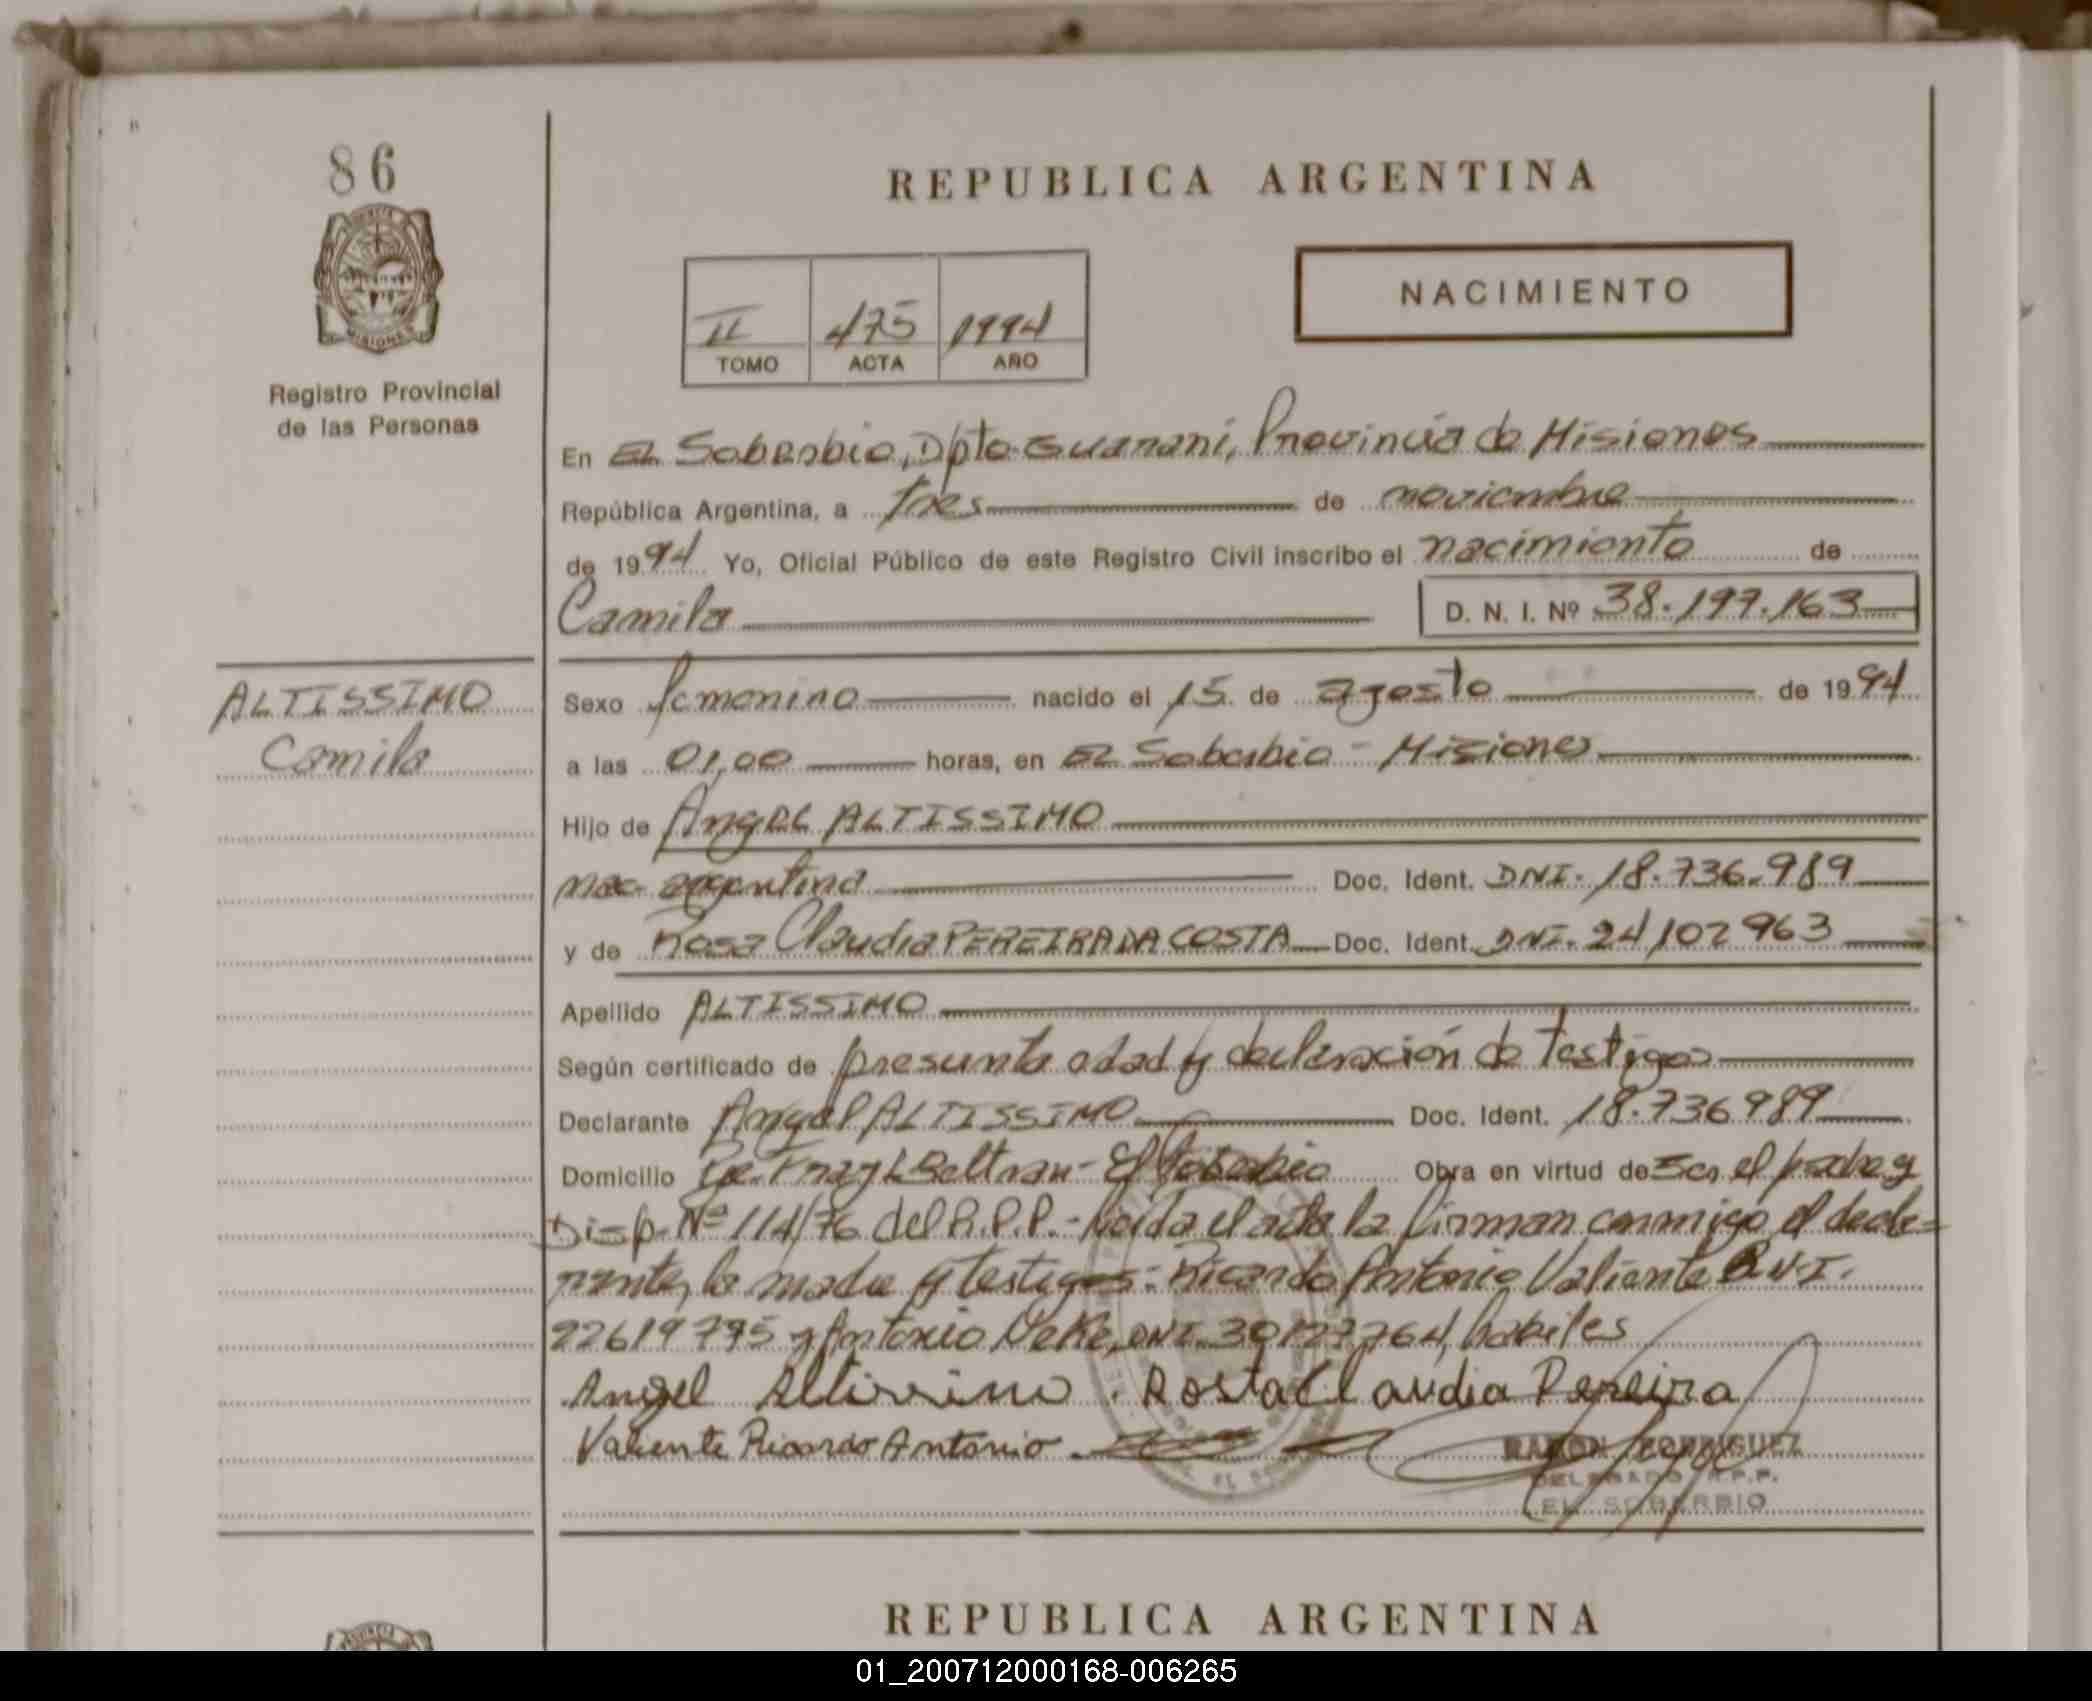 86
REPUBLICA ARGENTINA
NACIMIENTO
II 475 1994
TOMO ACTA AÑO
Registro Provincial
de las Personas
En El Soberbio, Dpto Guaraní, Provincia de Misiones
República Argentina, a tres de noviembre
de 1994 Yo, Oficial Público de este Registro Civil inscribo el nacimiento de
Camila D. N. I. Nº 38.197.163
ALTISSIMO
Camila
Sexo femenino nacido el 15 de agosto de 1994
a las 01,00 horas, en El Soberbio - Misiones
Hijo de Angel ALTISSIMO
nac. argentina Doc. Ident. DNI. 18.736.989
y de Rosa Claudia PEREIRA DA COSTA Doc. Ident. DNI. 24102963
Apellido ALTISSIMO
Según certificado de presunta edad y declaración de testigos
Declarante Angel ALTISSIMO Doc. Ident. 18.736989
Domicilio Fray L Beltran - El Soberbio Obra en virtud de ser el padre y
Disp. Nº 114/76 del R.P.P. - Leida el acta la firman conmigo el decla=
rante, la madre y testigos: Ricardo Antonio Valiente D.N.I.
22619795 y Antonio DNI. habiles
Angel Altissimo. Rosta Claudia Pereira
Valiente Ricardo Antonio
RAMON RODRIGUEZ
DELEGADO R.P.P.
EL SOBERBIO
REPUBLICA ARGENTINA
01_200712000168-006265